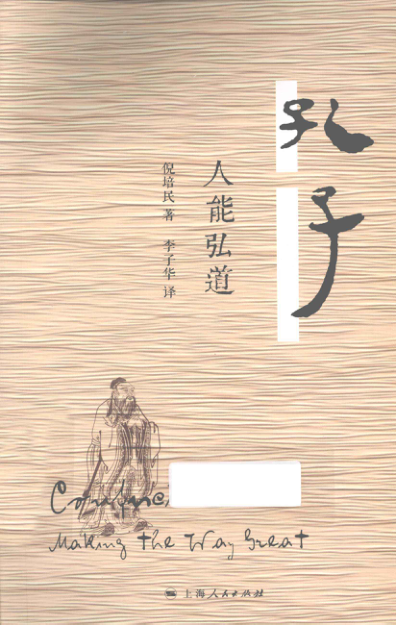 孔子
人能弘道
倪培民 著 李子华 译
Confuc
Making the Way Great
上海人民出版社